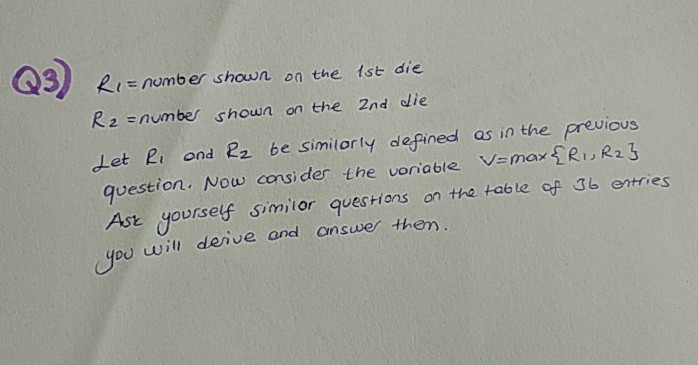 Q3) R1 = number shown on the 1st die
R2 = number shown on the 2nd die
Let R1 and R2 be similarly defined as in the previous
question. Now consider the variable V=max{R1, R2}
Ask yourself similar questions on the table of 36 entries
you will derive and answer them.